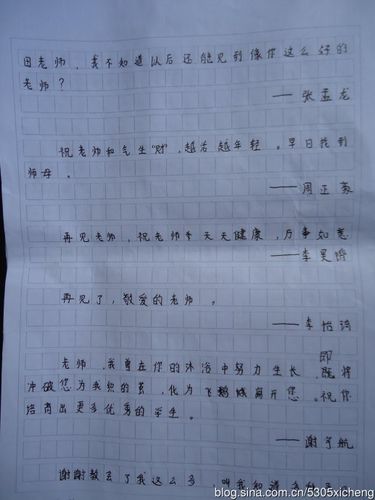 田老师，我不知道以后还能见到像你这么好的
老师？
——张孟龙
祝老师和气生"财"，越活越年轻。早日找到
师母。
——周正豪
再见老师，祝老师今天天健康，万事如意
——李昊
再见了，敬爱的老师。
——李怡
老师，我曾在你的沐浴中努力生长，即将
冲破您为我织的茧，化为飞鹅城离开您。祝你
培育出更多优秀的学生。
——谢宇航
谢谢教了我这么多，
blog.sina.com.cn/5305xicheng